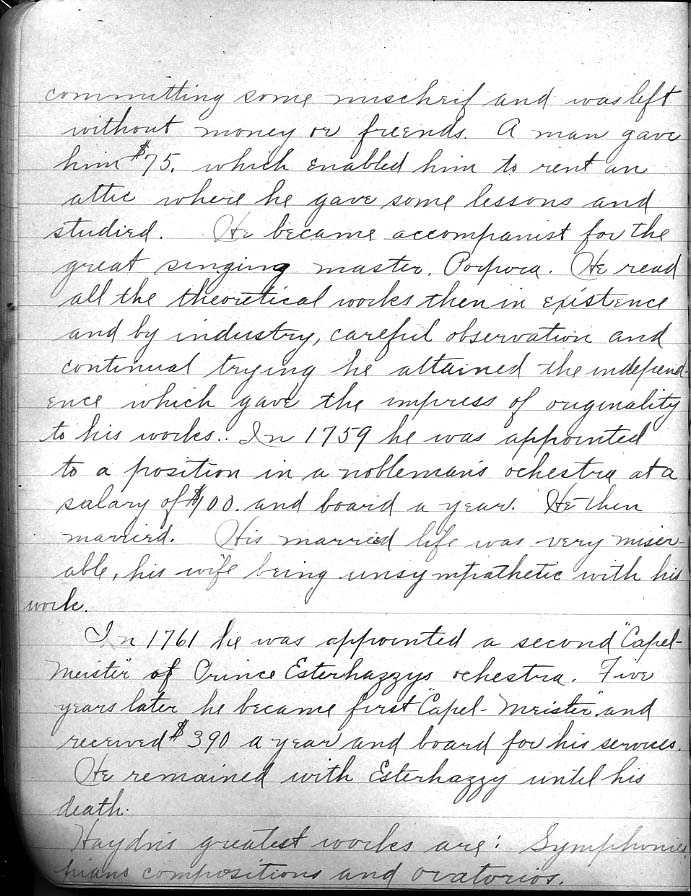 committing some mischeif and was left
without money or freends. A man gave
him $75. which enabled him to rent an
attic where he gave some lessons and
studied. He became accompanist for the
great singing master, Porpora. He read
all the theoretical works then in existence
and by industry, careful observation and
continual trying he attained the independ-
ence which gave the impress of originality
to his works.. In 1759 he was appointed
to a position in a nobleman's ochestra at a
salary of $100. and board a year. He then
married. His married life was very miser-
able, his wife being unsympathetic with his
work.
In 1761 he was appointed a second "Capel-
meister" of Prince Esterhazzys ochestra. Five
years later he became first "Capel-Meister" and
received $390 a year and board for his services.
He remained with Esterhazzy until his
death.
Haydn's greatest works are: Symphonies,
piano compositions and oratorios.